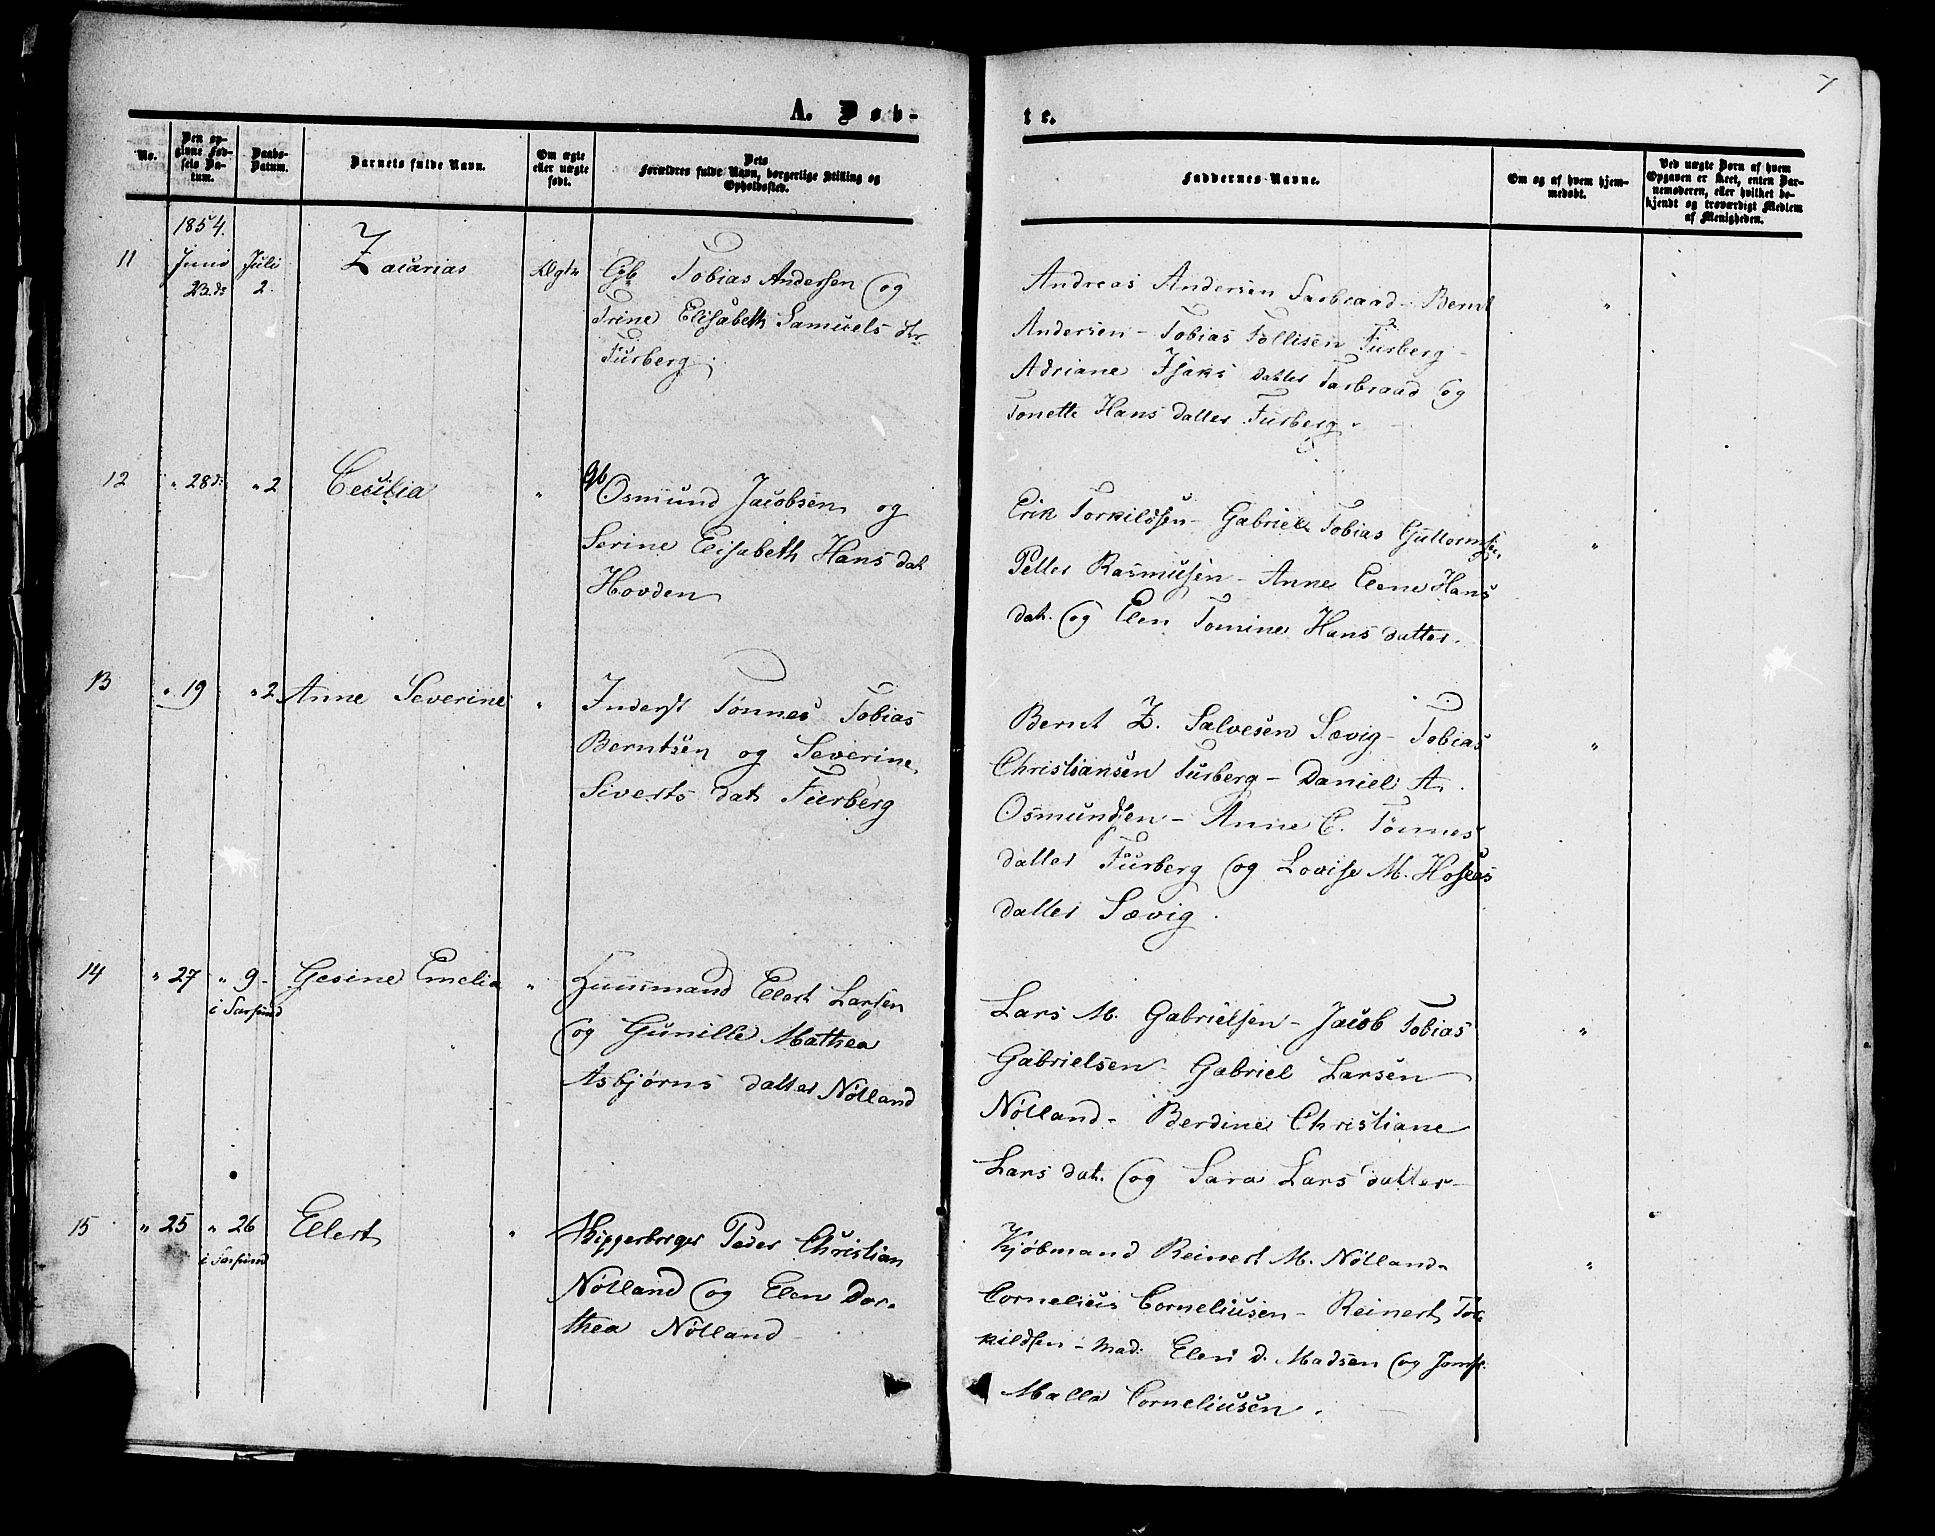 7
A. Døb-
te.
No.
Den opgivne Fødsels Datum.
Daabs-Datum.
Barnets fulde Navn.
Om ægte eller uægte født.
Dets Forældres fulde Navn, borgerlige Stilling og Opholdssted.
Faddernes Navne.
Om og af hvem hjemmedøbt.
Ved uægte Børn af hvem Opgaven er skeet, enten Barnemoderen, eller hvilket bekjendt og troværdigt Medlem af Menigheden.
1854.
11 Juni 23.de Juli 2. Zacarias Ægte
Gb Tobias Andersen og
Trine Elisabeth Samuels dtr
Furberg
Andreas Andersen Farbraad - Bernt "
Andersen - Tobias Tollisen Furberg -
Adriane Isaks datter Farbraad og
Tonette Hans datter Furberg.
12 " 28de " 2 Cecilia "
Gb Osmund Jacobsen og
Serine Elisabeth Hans dat
Hovden
Erik Torkildsen - Gabriel Tobias Guttormsen "
Petter Rasmusen - Anne Elene Hans
dat. og Elen Tomine Hans datter.
13 " 19 " 2 Anne Severine "
Inderst Tønnes Tobias
Berntsen og Severine
Siverts dat Furberg
Bernt Z. Salvesen Sævig - Tobias "
Christiansen Furberg - Daniel A.
Osmundsen - Anne C. Tønnes
datter Furberg og Lovise M. Hoseas
datter Sævig.
14 " 27 " 9 - i Farsund Gesine Emelia "
Huusmand Ellert Larsen
og Gunille Mathea
Asbjørns datter Nølland
Lars M. Gabrielsen - Jacob Tobias "
Gabrielsen - Gabriel Larsen
Nølland - Berdine Christiane
Lars dat. og Sara Lars datter -
15 " 25 " 26 i Farsund Ellert "
Skipperborger Peder Christian
Nølland og Elen Dor-
thea Nølland
Kjøbmand Reinert M. Nølland - "
Cornelius Corneliusen - Reinert Tor-
kildsen - Mad: Elen D. Madsen og Jomf.
Malla Corneliusen.